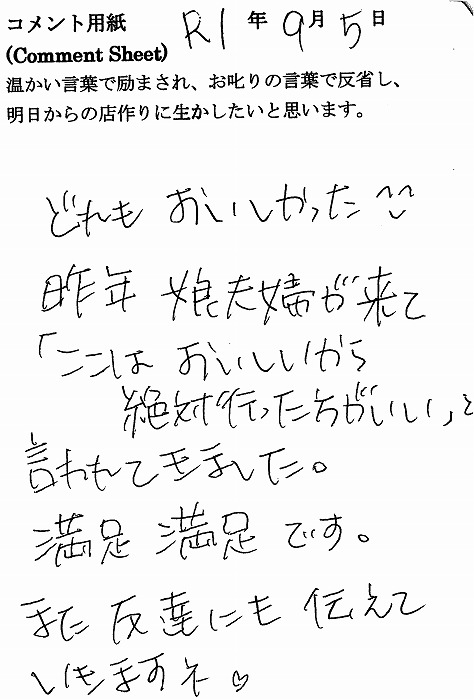 コメント用紙 R1年9月5日
(Comment Sheet)
温かい言葉で励まされ、お叱りの言葉で反省し、
明日からの店作りに生かしたいと思います。
どれも おいしかった ^^
昨年 娘夫婦が来て
「ここは おいしいから
絶対行った方がいい」と
言われてきました。
満足 満足 です。
また 友達にも 伝えて
いきますネ♡